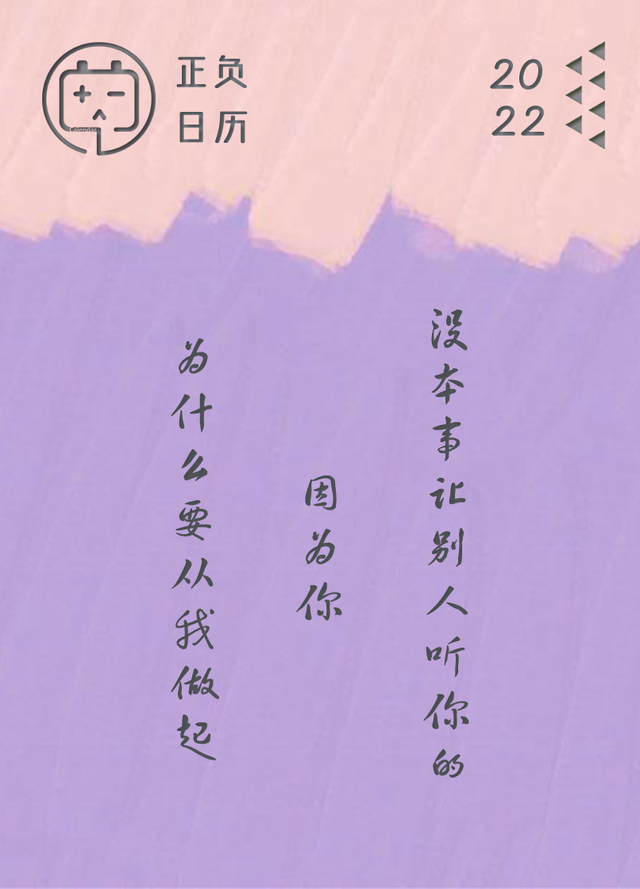 Calendar
正负
日历
20
22
为什么要从我做起
因为你
没本事让别人听你的